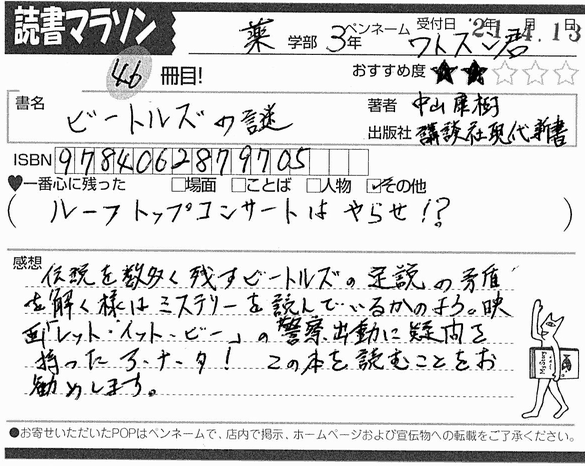 読書マラソン
薬 学部 3年 ペンネーム ワトスン君 受付日 '21年4月13日
46 冊目! おすすめ度 ★★☆☆☆
書名 ビートルズの謎 著者 中山康樹
出版社 講談社現代新書
ISBN 9784062879705
♥一番心に残った □場面 □ことば □人物 ☑その他
(ルーフトップコンサートはやらせ!?)
感想
伝説を数多く残すビートルズの定説の矛盾
を解く様はミステリーを読んでいるかのよう。映
画「レット・イット・ビー」の警察出動に疑問を
持ったア・ナ・タ! この本を読むことをお
勧めします。
Mystery
●お寄せいただいたPOPはペンネームで、店内で掲示、ホームページおよび宣伝物への転載をご了承ください。